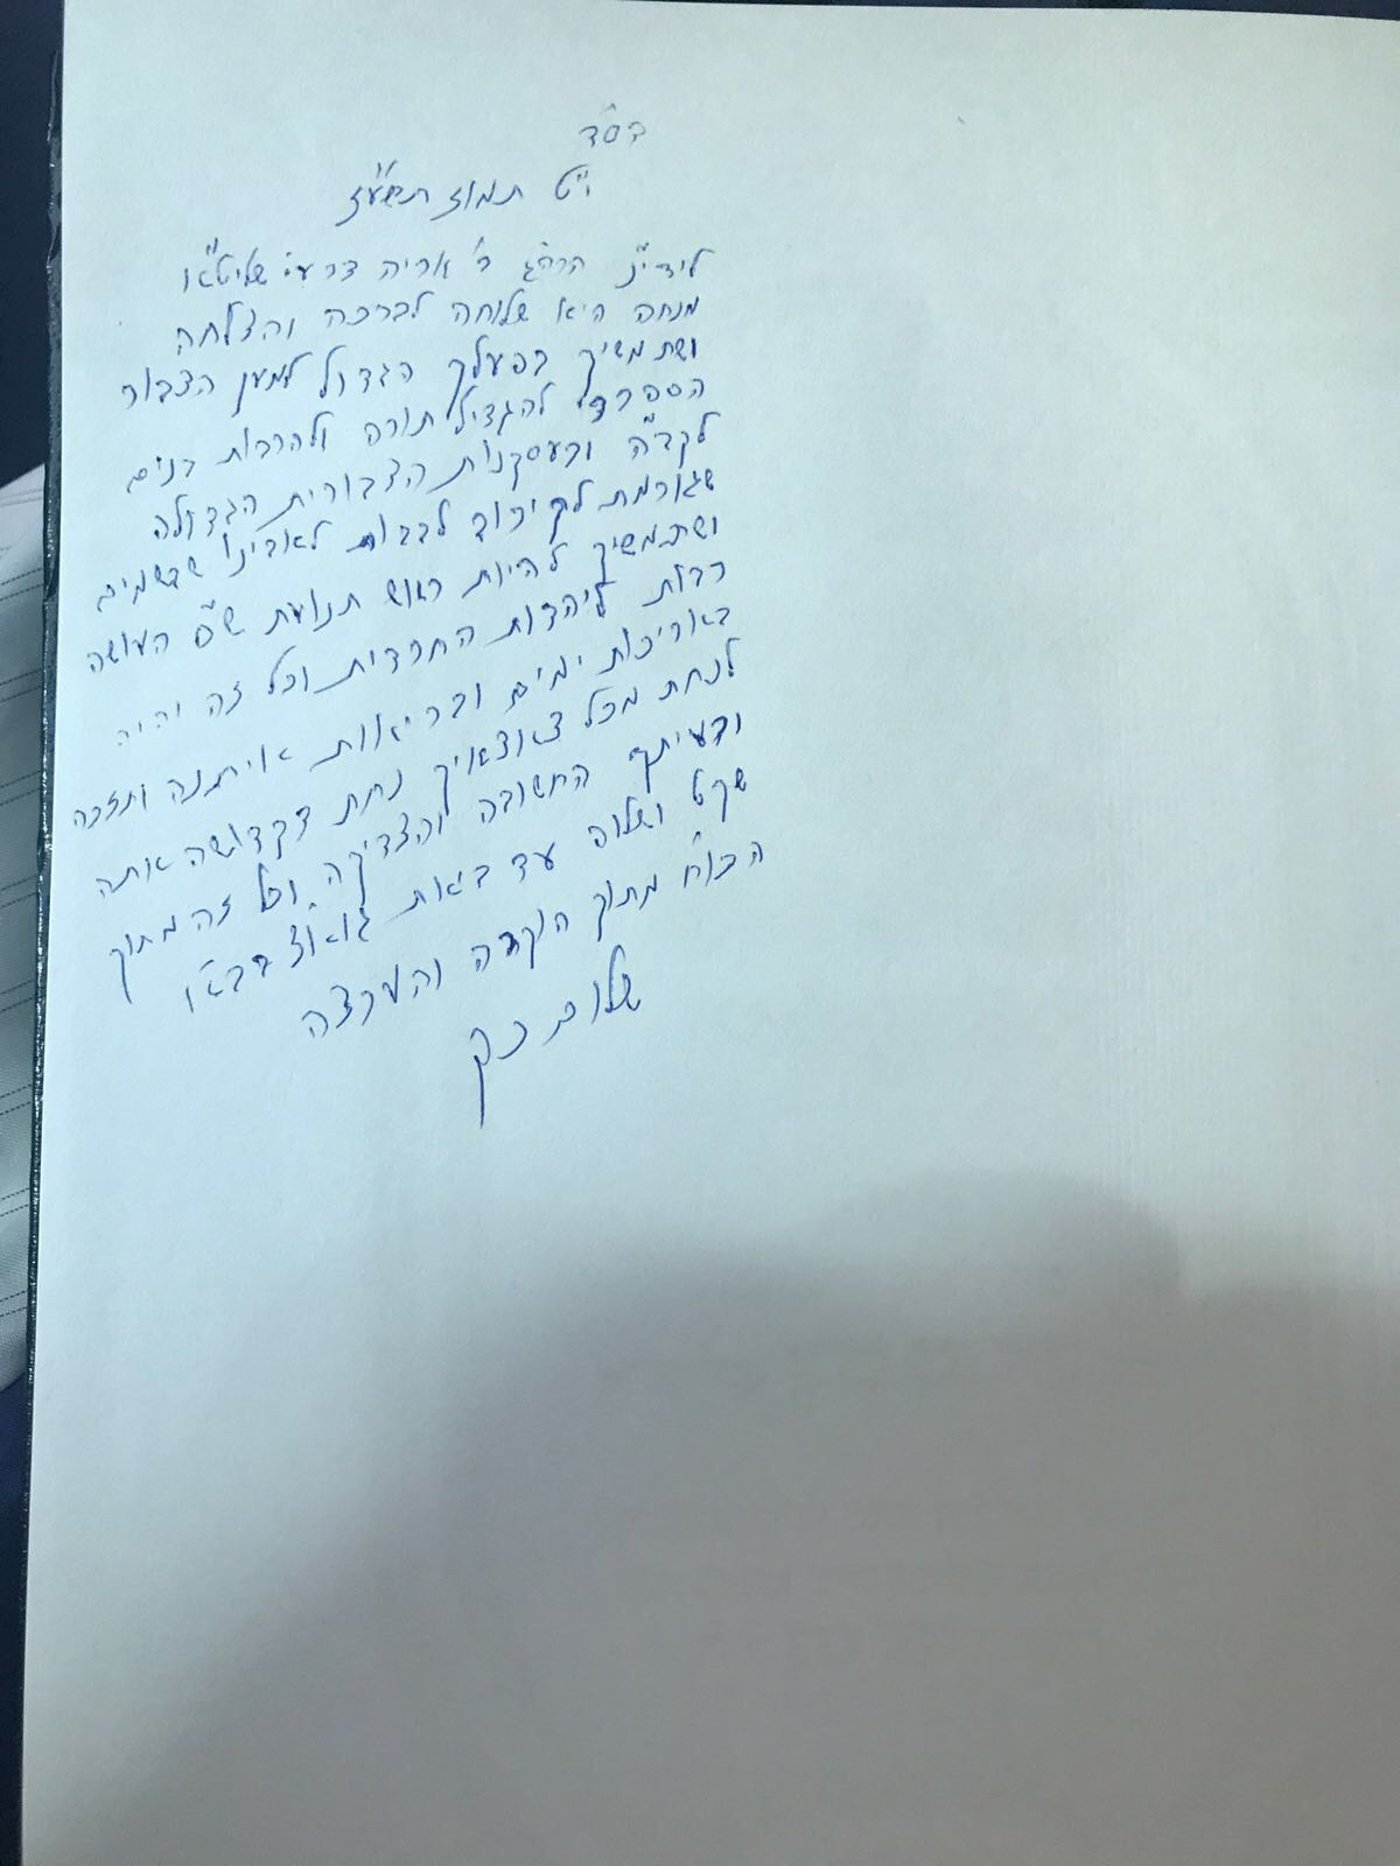 בס"ד
י"ט תמוז תשע"ז
לידי"נ הרה"ג ר' אריה דרעי שליט"או
מנחה היא שלוחה לברכה והצלחה
ושתמשיך בפעלך הגדול למען הצבור
הספרדי להגדיל תורה ולהרבות בנים
לקב"ה ובעסקנות הצבורית הגדולה
שגורמת לקירוב לבבות לאבינו שבשמים
ושתמשיך להיות ראש תנועת ש"ס העושה
רבות ליהדות החרדית וכל זה יהיה
באריכות ימים ובריאות איתנה ותזכה
לנחת מכל צאצאיך נחת דקדושה אתה
ורעיתך החשובה והצדיקה וכל זה מתוך
שקט ושלוה עד ביאת גוא"צ בב"א
הכו"ח מתוך הוקרה והערצה
שלום כהן